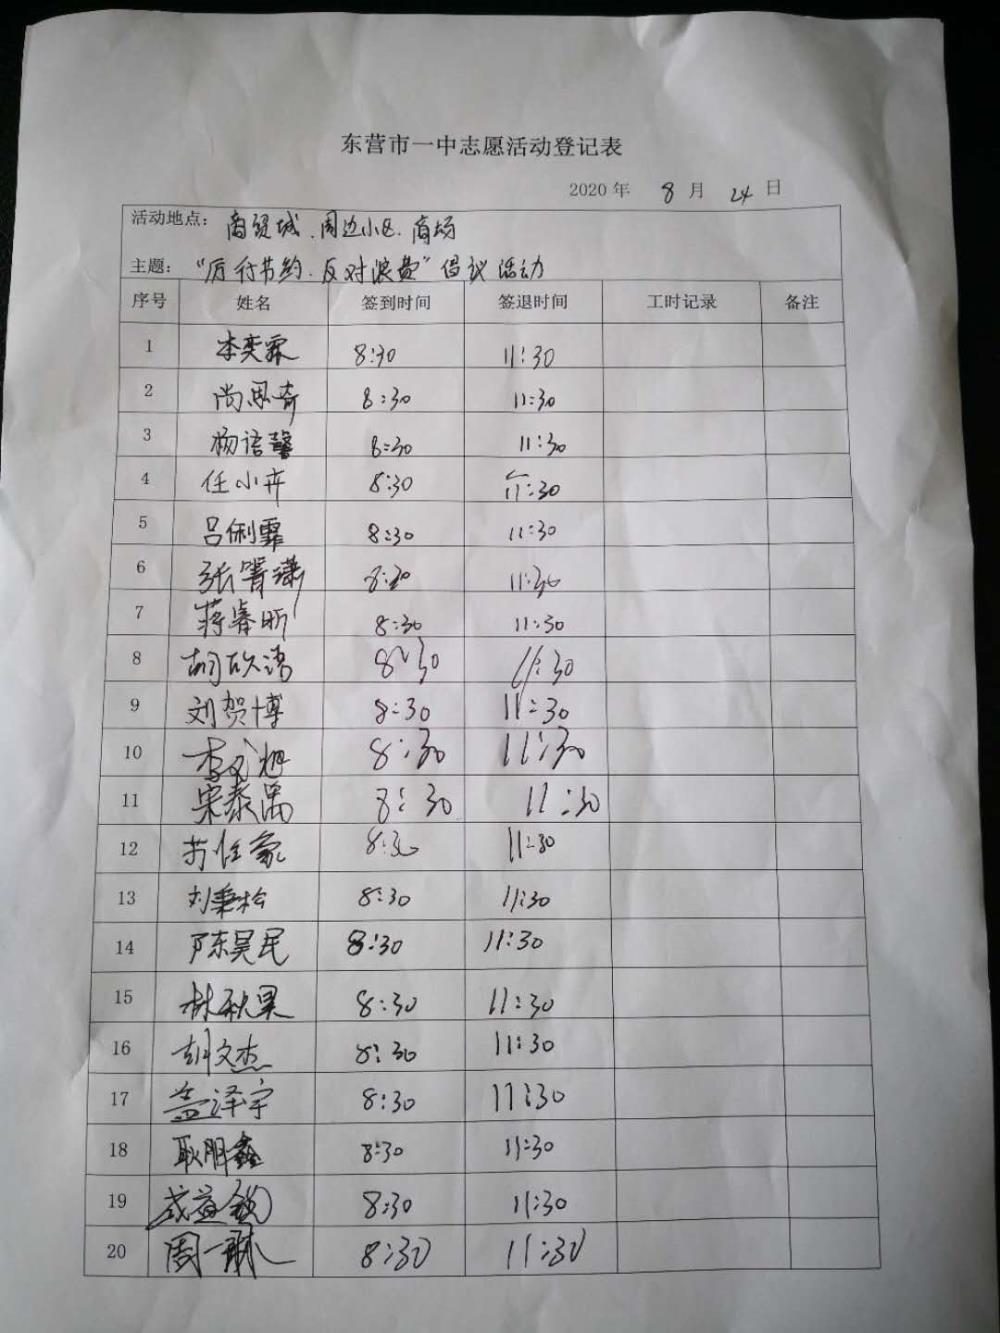 东营市一中志愿活动登记表
2020 年 8 月 24 日
活动地点: 商贸城、周边小区、商场
主题: "厉行节约、反对浪费"倡议活动
序号 姓名 签到时间 签退时间 工时记录 备注
1 李奕霖 8:30 11:30
2 尚思奇 8:30 11:30
3 杨语馨 8:30 11:30
4 任小卉 8:30 11:30
5 吕俐霏 8:30 11:30
6 张箐潇 8:30 11:30
7 蒋睿昕 8:30 11:30
8 胡 8:30 11:30
9 刘贺博 8:30 11:30
10 李 8:30 11:30
11 宋泰禹 8:30 11:30
12 8:30 11:30
13 刘秉松 8:30 11:30
14 陈昊民 8:30 11:30
15 林秋果 8:30 11:30
16 胡文杰 8:30 11:30
17 盖泽宇 8:30 11:30
18 耿明鑫 8:30 11:30
19 成益 8:30 11:30
20 周一 8:30 11:30